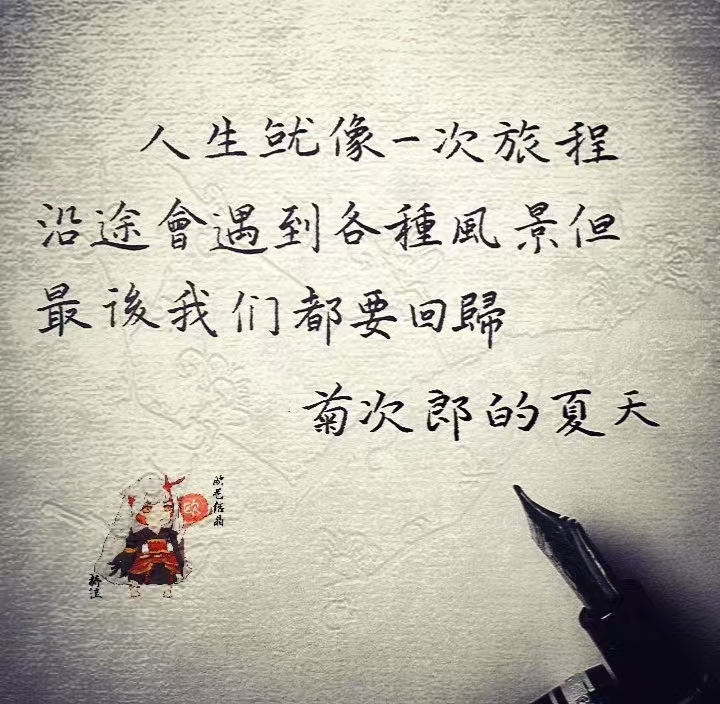 人生就像一次旅程
沿途會遇到各種風景但
最後我们都要回歸
菊次郎的夏天
欧